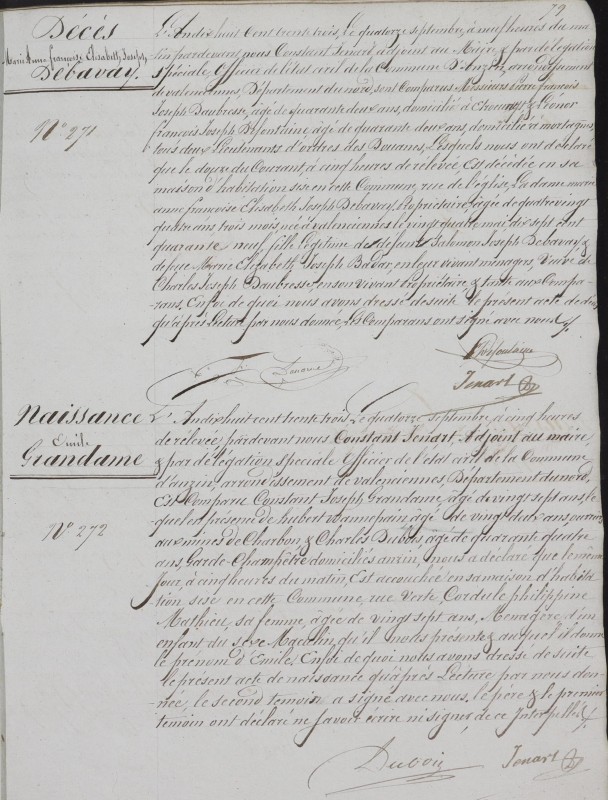 79
Décès
Marie Anne françoise Elisabeth Joseph
Debavay.
N° 271
L'An dix huit Cent trente trois, le quatorze septembre, à neuf heures du ma-
tin, pardevant nous Constant Tenart adjoint au Maire, & par délégation
spéciale Officier de l'état civil de la Commune D'Anzin, arrondissement
de valenciennes, Département du nord, sont Comparus Messieurs Pierre françois
Joseph Daubresse, âgé de quarante deux ans, domicilié à & Léonor
françois Joseph Defontaine âgé de quarante deux ans, domicilié à mortagne,
tous deux Lieutenants d'ordres des Douanes, Lesquels nous ont déclaré
que le douze du Courant, à cinq heures de relevée, Est décédée en sa
maison d'habitation sise en cette Commune, rue de l'église, La dame marie
anne françoise Elisabeth Joseph Debavay, Propriétaire, âgée de quatre vingt
quatre ans trois mois, née à valenciennes le vingt quatre mai, dix sept cent
quarante neuf, fille légitime de défunt Salomon Joseph Debavay, &
défunte Marie Elizabeth Joseph Badar, en leur vivant ménagers, Veuve de
Charles Joseph Daubresse, en son vivant Propriétaire, & tante aux Compa-
-rans. En foi de quoi nous avons dressé de suite le présent acte de décès
qu'après Lecture par nous donnée, Les Comparans ont signé avec nous.
Defontaine
Tenart
Naissance
Emile
Grandame
N° 272
L'An dix huit cent trente trois, le quatorze septembre, à cinq heures
de relevée, pardevant nous Constant Tenart Adjoint au maire,
& par délégation spéciale Officier de l'état civil de la Commune
d'anzin, arrondissement de valenciennes, Département du nord,
Est Comparu Constant Joseph Grandame, âgé de vingt sept ans, le
quel en présence de hubert Wannepain âgé de vingt deux ans, ouvrier
aux mines de Charbon & Charles Dubois âgé de quarante quatre
ans, Garde-Champêtre domiciliés anzin, nous a déclaré que le même
jour, à cinq heures du matin, Est accouchée en sa maison d'habita
tion sise en cette Commune, rue Verte, Cordule philippine
Mathieu, sa femme, âgée de vingt sept ans, Menagère, d'un
enfant du sexe Masculin, qu'il nous présente & auquel il donne
le prénom d'Emile. En foi de quoi nous avons dressé de suite
le présent acte de naissance qu'après Lecture par nous don-
née, le second temoin a signé avec nous, le père & le premier
temoin ont déclaré ne savoir écrire ni signer de ce Interpellés.
Dubois
Tenart